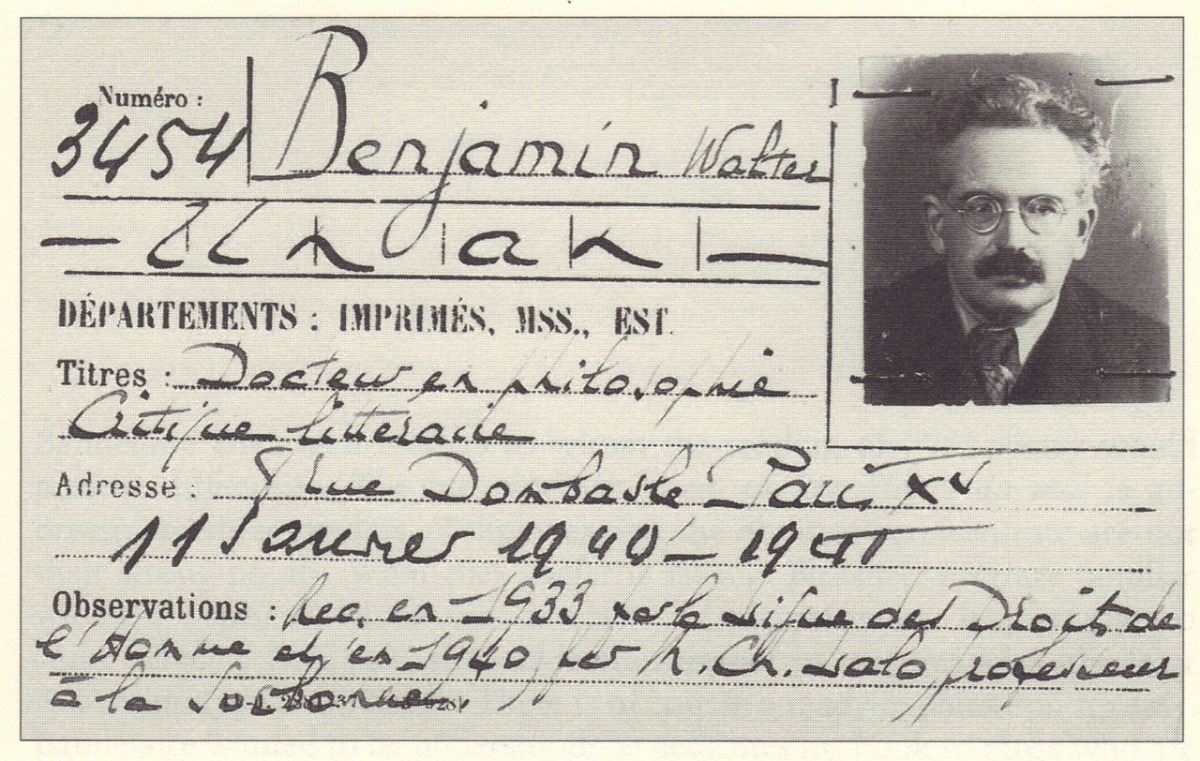 Numéro :
3454
Benjamin Walter
Un an
DÉPARTEMENTS : IMPRIMÉS, MSS., EST.
Titres : Docteur en philosophie
Critique litteraire
Adresse : rue Dombasle Paris XV
11 Janvier 1940 - 1941
Observations : Rec. en 1933 par la Ligue des Droits de
l'Homme et en 1940 par M. Ch. Lalo professeur
à la Sorbonne